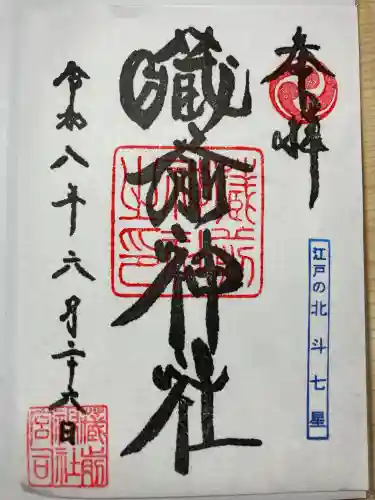 奉拝
江戸の北斗七星
蔵前神社
令和八年六月二十六日
蔵前神社宮司